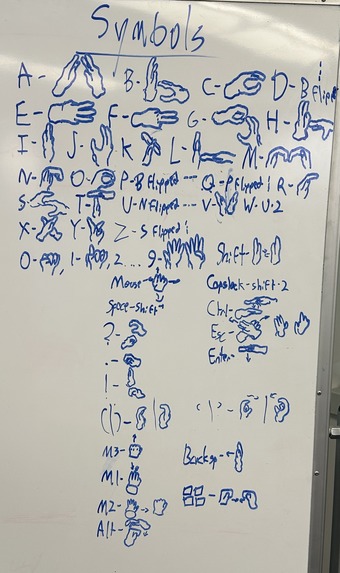 Symbols
A- B- C- D-B flipped
E- F- G- H-
I- J- K L- M-
N- O- P-B flipped --- Q-P flipped R-
S- T- U-N flipped --- V- W-U.2
X- Y- Z-S flipped
0- , 1- , 2.... 9- Shift
Mouse- Capslock-shift-2
Space-shift- Ctrl-
?- Esc-
.- Enter-
!-
( | )- |
M3- Backsp-
M1-
M2-
Alt-